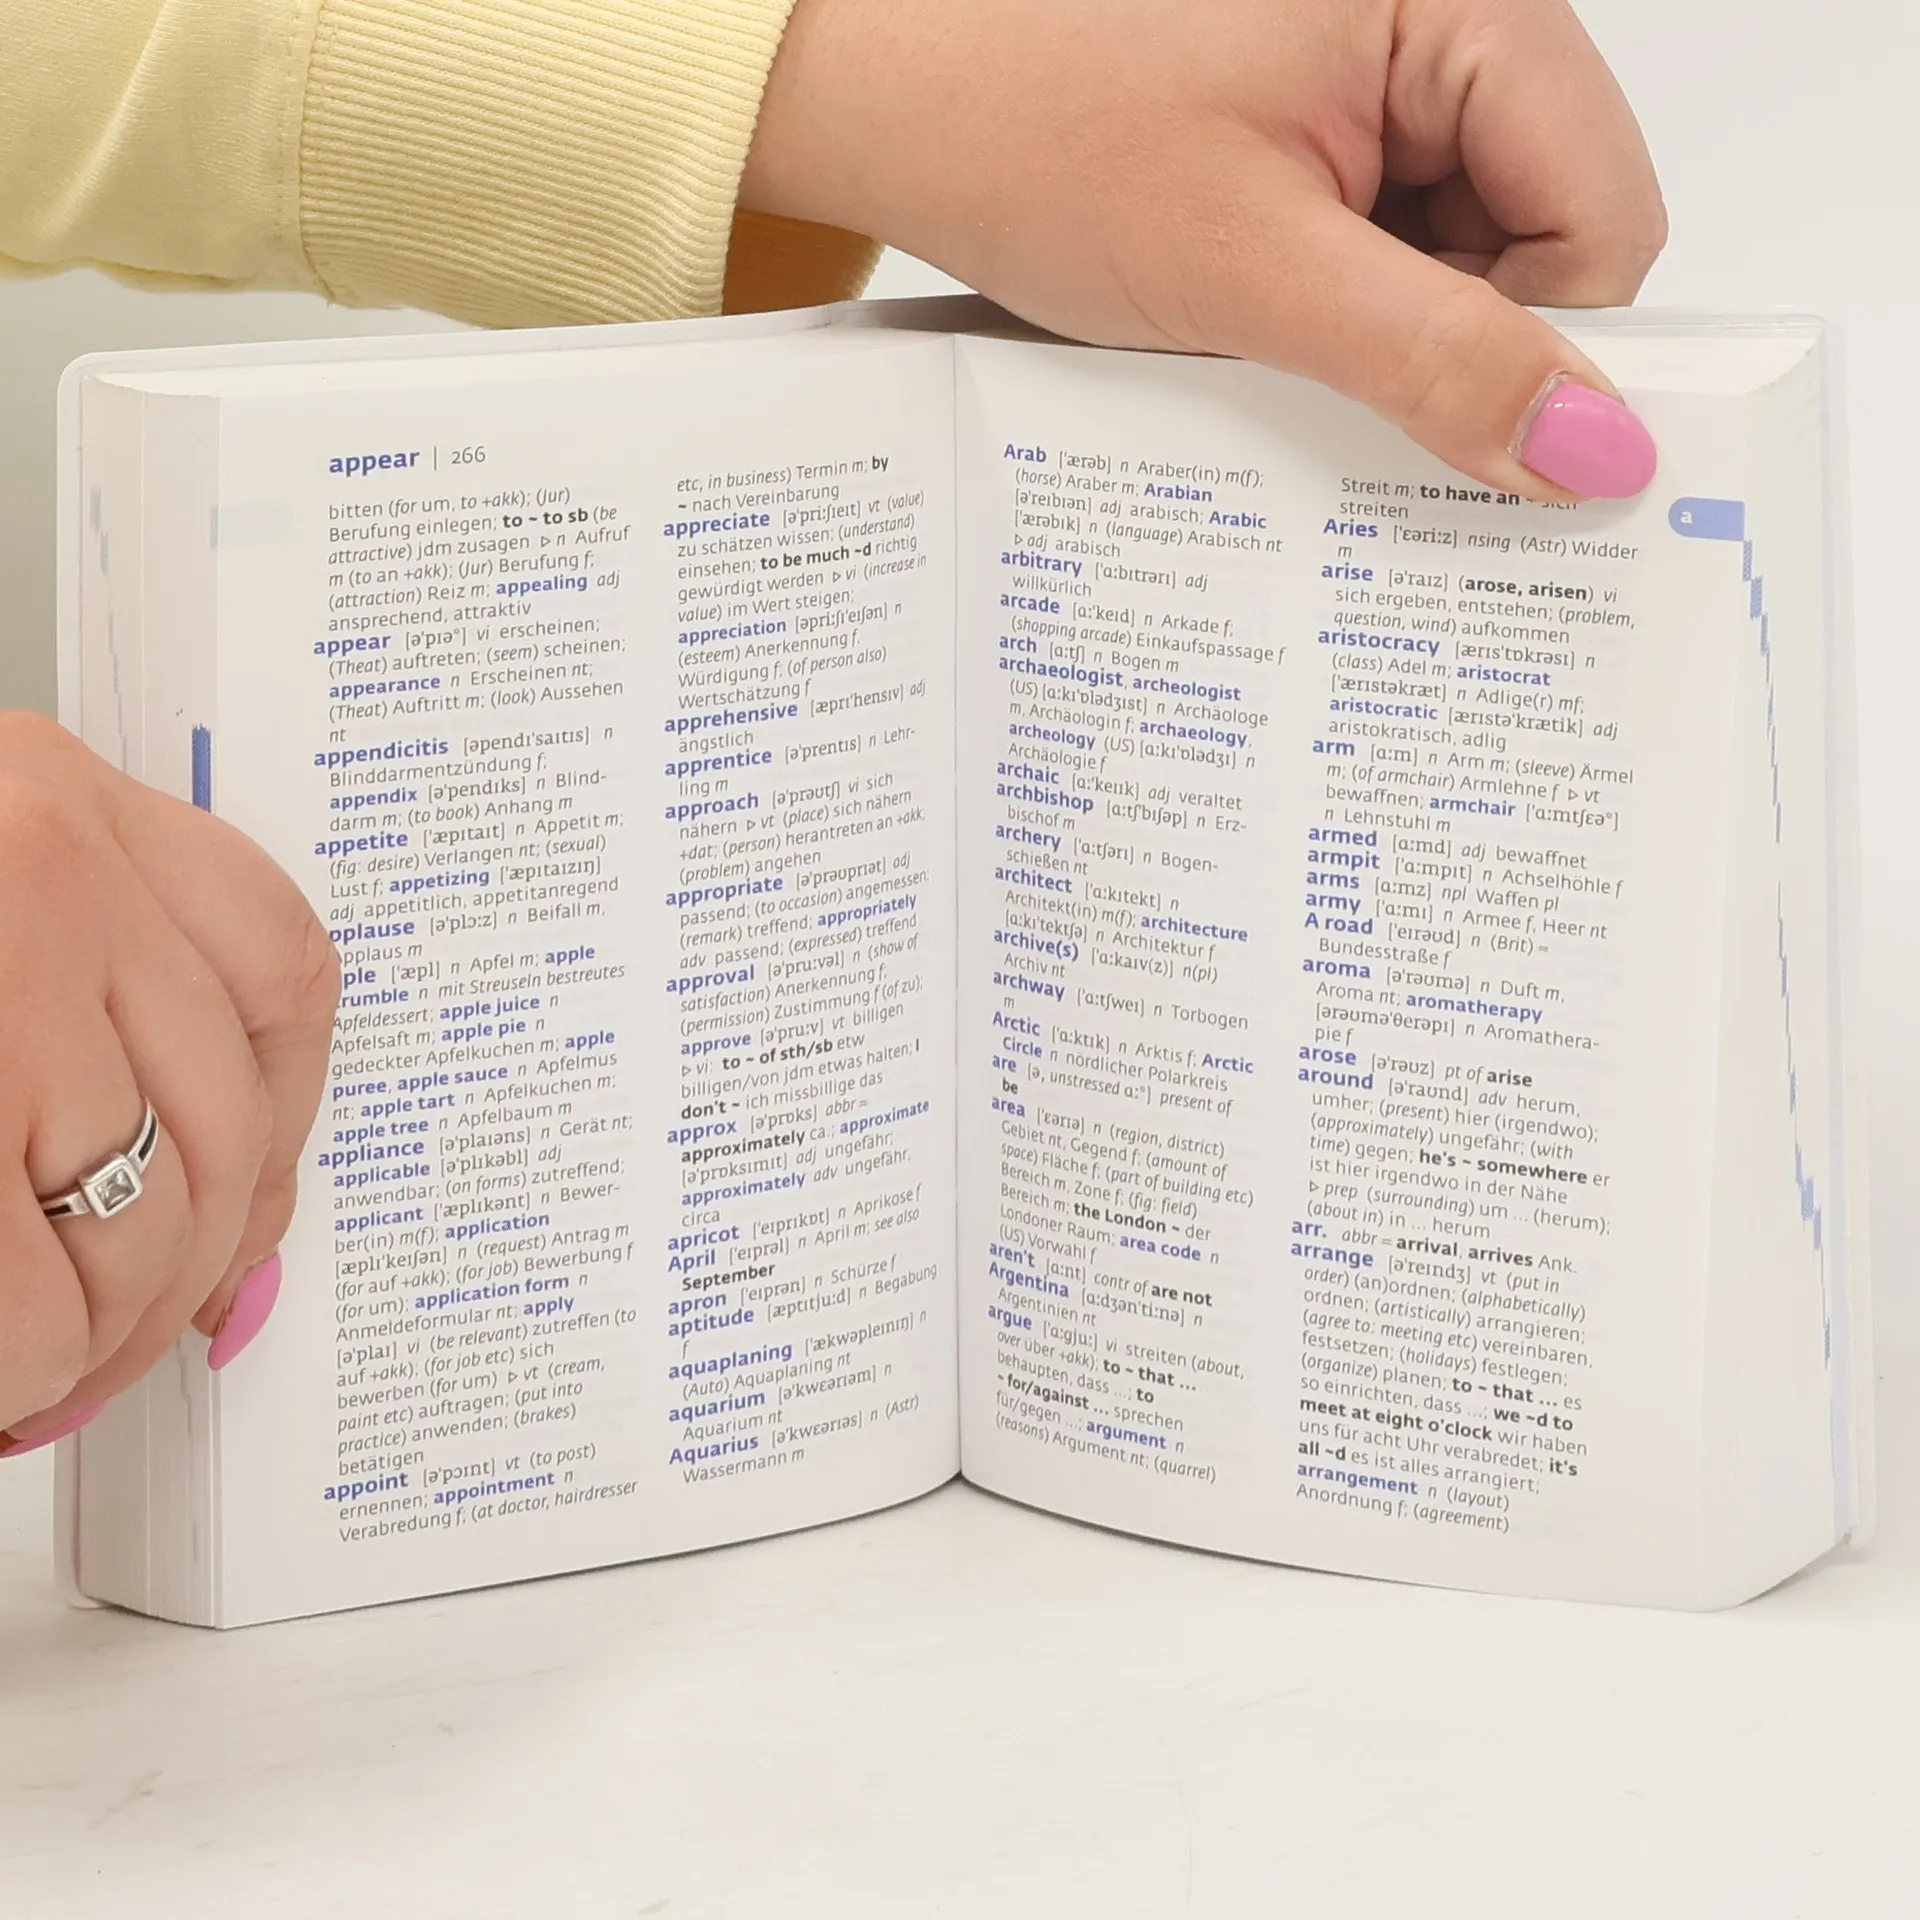 appear | 266
bitten (for um, to +akk); (Jur)
Berufung einlegen; to ~ to sb (be
attractive) jdm zusagen ▷ n Aufruf
m (to an +akk); (Jur) Berufung f;
(attraction) Reiz m; appealing adj
ansprechend, attraktiv
appear [ə'pɪəʳ] vi erscheinen;
(Theat) auftreten; (seem) scheinen;
appearance n Erscheinen nt;
(Theat) Auftritt m; (look) Aussehen
nt
appendicitis [əpendɪ'saɪtɪs] n
Blinddarmentzündung f;
appendix [ə'pendɪks] n Blind-
darm m; (to book) Anhang m
appetite ['æpɪtaɪt] n Appetit m;
(fig: desire) Verlangen nt; (sexual)
Lust f; appetizing ['æpɪtaɪzɪŋ]
adj appetitlich, appetitanregend
pplause [ə'plɔ:z] n Beifall m,
Applaus m
ple ['æpl] n Apfel m; apple
rumble n mit Streuseln bestreutes
Apfeldessert; apple juice n
Apfelsaft m; apple pie n
gedeckter Apfelkuchen m; apple
puree, apple sauce n Apfelmus
nt; apple tart n Apfelkuchen m;
apple tree n Apfelbaum m
appliance [ə'plaɪəns] n Gerät nt;
applicable [ə'plɪkəbl] adj
anwendbar; (on forms) zutreffend;
applicant ['æplɪkənt] n Bewer-
ber(in) m(f); application
[æplɪ'keɪʃən] n (request) Antrag m
(for auf +akk); (for job) Bewerbung f
(for um); application form n
Anmeldeformular nt; apply
[ə'plaɪ] vi (be relevant) zutreffen (to
auf +akk); (for job etc) sich
bewerben (for um) ▷ vt (cream,
paint etc) auftragen; (put into
practice) anwenden; (brakes)
betätigen
appoint [ə'pɔɪnt] vt (to post)
ernennen; appointment n
Verabredung f; (at doctor, hairdresser
etc, in business) Termin m; by
~ nach Vereinbarung
appreciate [ə'pri:ʃɪeɪt] vt (value)
zu schätzen wissen; (understand)
einsehen; to be much ~d richtig
gewürdigt werden ▷ vi (increase in
value) im Wert steigen;
appreciation [əpri:ʃɪ'eɪʃən] n
(esteem) Anerkennung f,
Würdigung f; (of person also)
Wertschätzung f
apprehensive [æprɪ'hensɪv] adj
ängstlich
apprentice [ə'prentɪs] n Lehr-
ling m
approach [ə'prəʊtʃ] vi sich
nähern ▷ vt (place) sich nähern
+dat; (person) herantreten an +akk;
(problem) angehen
appropriate [ə'prəʊprɪət] adj
passend; (to occasion) angemessen;
(remark) treffend; appropriately
adv passend; (expressed) treffend
approval [ə'pru:vəl] n (show of
satisfaction) Anerkennung f;
(permission) Zustimmung f (of zu);
approve [ə'pru:v] vt billigen
▷ vi: to ~ of sth/sb etw
billigen/von jdm etwas halten; I
don't ~ ich missbillige das
approx [ə'prɒks] abbr =
approximately ca.; approximate
[ə'prɒksɪmɪt] adj ungefähr;
approximately adv ungefähr,
circa
apricot ['eɪprɪkɒt] n Aprikose f
April ['eɪprəl] n April m; see also
September
apron ['eɪprən] n Schürze f
aptitude [æptɪtju:d] n Begabung
f
aquaplaning ['ækwəpleɪnɪŋ] n
(Auto) Aquaplaning nt
aquarium [ə'kwɛərɪəm] n
Aquarium nt
Aquarius [ə'kwɛərɪəs] n (Astr)
Wassermann m
Arab ['ærəb] n Araber(in) m(f);
(horse) Araber m; Arabian
[ə'reɪbɪən] adj arabisch; Arabic
['ærəbɪk] n (language) Arabisch nt
▷ adj arabisch
arbitrary ['ɑ:bɪtrərɪ] adj
willkürlich
arcade [ɑ:'keɪd] n Arkade f;
(shopping arcade) Einkaufspassage f
arch [ɑ:tʃ] n Bogen m
archaeologist, archeologist
(US) [ɑ:kɪ'ɒlədʒɪst] n Archäologe
m, Archäologin f; archaeology,
archeology (US) [ɑ:kɪ'ɒlədʒɪ] n
Archäologie f
archaic [ɑ:'keɪɪk] adj veraltet
archbishop [ɑ:tʃ'bɪʃəp] n Erz-
bischof m
archery ['ɑ:tʃərɪ] n Bogen-
schießen nt
architect ['ɑ:kɪtekt] n
Architekt(in) m(f); architecture
[ɑ:kɪ'tektʃə] n Architektur f
archive(s) ['ɑ:kaɪv(z)] n(pl)
Archiv nt
archway ['ɑ:tʃweɪ] n Torbogen
m
Arctic ['ɑ:ktɪk] n Arktis f; Arctic
Circle n nördlicher Polarkreis
are [ə, unstressed ɑ:ʳ] present of
be
area ['ɛərɪə] n (region, district)
Gebiet nt, Gegend f; (amount of
space) Fläche f; (part of building etc)
Bereich m, Zone f; (fig: field)
Bereich m; the London ~ der
Londoner Raum; area code n
(US) Vorwahl f
aren't [ɑ:nt] contr of are not
Argentina [ɑ:dʒən'ti:nə] n
Argentinien nt
argue ['ɑ:gju:] vi streiten (about,
over über +akk); to ~ that ...
behaupten, dass ...; to
~ for/against ... sprechen
für/gegen ...; argument n
(reasons) Argument nt; (quarrel)
Streit m; to have an ~ sich
streiten
Aries ['ɛəri:z] nsing (Astr) Widder
m
arise [ə'raɪz] (arose, arisen) vi
sich ergeben, entstehen; (problem,
question, wind) aufkommen
aristocracy [ærɪs'tɒkrəsɪ] n
(class) Adel m; aristocrat
['ærɪstəkræt] n Adlige(r) mf;
aristocratic [ærɪstə'krætik] adj
aristokratisch, adlig
arm [ɑ:m] n Arm m; (sleeve) Ärmel
m; (of armchair) Armlehne f ▷ vt
bewaffnen; armchair ['ɑ:mtʃɛəʳ]
n Lehnstuhl m
armed [ɑ:md] adj bewaffnet
armpit ['ɑ:mpɪt] n Achselhöhle f
arms [ɑ:mz] npl Waffen pl
army ['ɑ:mɪ] n Armee f, Heer nt
A road ['eɪrəʊd] n (Brit) ≈
Bundesstraße f
aroma [ə'rəʊmə] n Duft m,
Aroma nt; aromatherapy
[ərəʊmə'θerəpɪ] n Aromathera-
pie f
arose [ə'rəʊz] pt of arise
around [ə'raʊnd] adv herum,
umher; (present) hier (irgendwo);
(approximately) ungefähr; (with
time) gegen; he's ~ somewhere er
ist hier irgendwo in der Nähe
▷ prep (surrounding) um ... (herum);
(about in) in ... herum
arr. abbr = arrival, arrives Ank.
arrange [ə'reɪndʒ] vt (put in
order) (an)ordnen; (alphabetically)
ordnen; (artistically) arrangieren;
(agree to: meeting etc) vereinbaren,
festsetzen; (holidays) festlegen;
(organize) planen; to ~ that ... es
so einrichten, dass ...; we ~d to
meet at eight o'clock wir haben
uns für acht Uhr verabredet; it's
all ~d es ist alles arrangiert;
arrangement n (layout)
Anordnung f; (agreement)
a